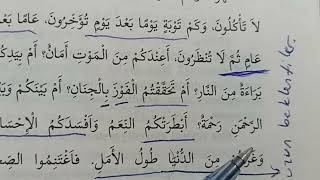 لَا تَأْكُلُونَ، وَكَمْ تَوْبَةٍ يَوْمًا بَعْدَ يَوْمٍ تُؤَخِّرُونَ، عَامًا بَعْدَ
عَامٍ ثُمَّ لَا تُنْظَرُونَ. أَعِنْدَكُمْ مِنَ الْمَوْتِ أَمَانٌ؟ أَمْ بِيَدِكُمْ
بَرَاءَةٌ مِنَ النَّارِ؟ أَمْ تَحَقَّقْتُمُ الْفَوْزَ بِالْجِنَانِ؟ أَمْ بَيْنَكُمْ وَبَيْنَ
الرَّحْمٰنِ رَحْمَةٌ؟ أَبْطَرَتْكُمُ النِّعَمُ وَأَفْسَدَكُمُ الْإِحْسَانُ
مِنَ الدُّنْيَا طُولُ الْأَمَلِ. فَاغْتَنِمُوا
uzun beklentiler